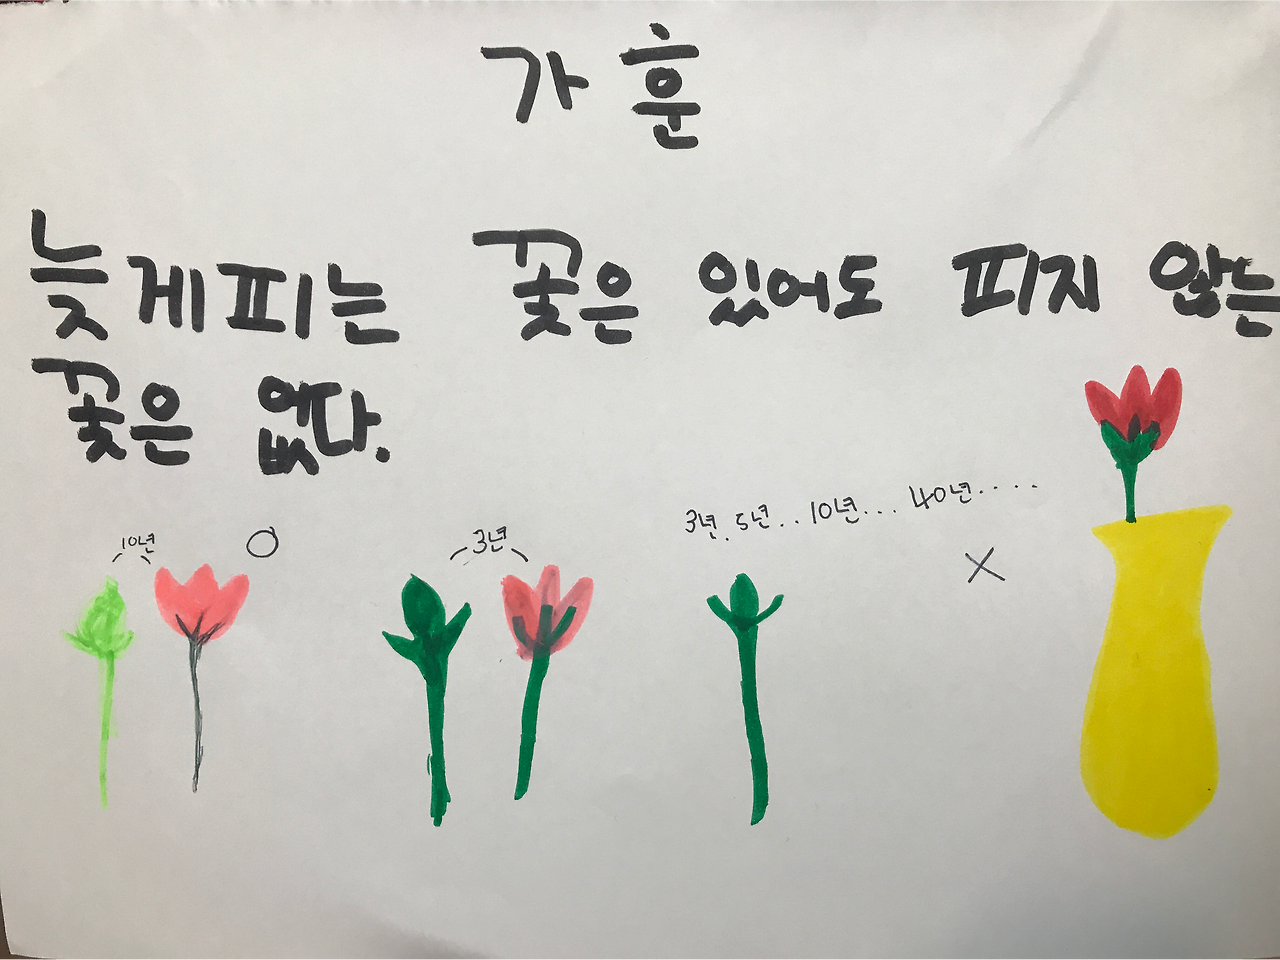 가훈
늦게피는 꽃은 있어도 피지 않는
꽃은 없다.
10년
3년
3년, 5년..10년... 40년....